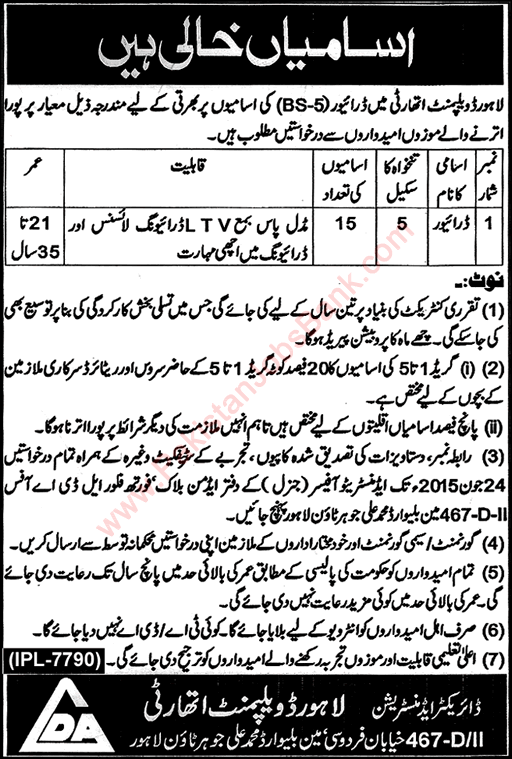 اسامیاں خالی ہیں
لاہور ڈویلپمنٹ اتھارٹی میں ڈرائیور (BS-5) کی اسامیوں پر بھرتی کے لیے مندرجہ ذیل معیار پر پورا
اترنے والے موزوں امیدواروں سے درخواستیں مطلوب ہیں۔
نمبر شمار | اسامی کا نام | تنخواہ کا سکیل | اسامیوں کی تعداد | قابلیت | عمر
1 | ڈرائیور | 5 | 15 | مڈل پاس بمع LTV ڈرائیونگ لائسنس اور ڈرائیونگ میں اچھی مہارت | 21 تا 35 سال
نوٹ:۔
(1) تقرری کنٹریکٹ کی بنیاد پر تین سال کے لیے کی جائے گی جس میں تسلی بخش کارکردگی کی بنا پر توسیع بھی
کی جا سکے گی۔ چھے ماہ کا پروبیشن پیریڈ ہوگا۔
(2) (i) گریڈ 1 تا 5 کی اسامیوں کا 20 فیصد کوٹہ گریڈ 1 تا 5 کے حاضر سروس اور ریٹائرڈ سرکاری ملازمین
کے بچوں کے لیے مختص ہے۔
(ii) پانچ فیصد اسامیاں اقلیتوں کے لیے مختص ہیں تاہم انہیں ملازمت کی دیگر شرائط پر پورا اترنا ہوگا۔
(3) رابطہ نمبر، دستاویزات کی تصدیق شدہ کاپیوں، تجربے کے سرٹیفکیٹ وغیرہ کے ہمراہ تمام درخواستیں
24 جون 2015ء تک ایڈمنسٹریٹو آفیسر (جنرل) کے دفتر ایڈمن بلاک، فورتھ فلور ایل ڈی اے آفس
467-D-II مین بلیوارڈ محمد علی جوہر ٹاؤن لاہور پہنچ جائیں۔
(4) گورنمنٹ / سیمی گورنمنٹ اور خود مختار اداروں کے ملازمین اپنی درخواستیں محکمانہ توسط سے ارسال کریں۔
(5) تمام امیدواروں کو حکومت کی پالیسی کے مطابق عمر کی بالائی حد میں پانچ سال تک رعایت دی جائے
گی۔ عمر کی بالائی حد میں کوئی مزید رعایت نہیں دی جائے گی۔
(6) صرف اہل امیدواروں کو انٹرویو کے لیے بلایا جائے گا۔ کوئی ٹی اے / ڈی اے نہیں دیا جائے گا۔
(7) اعلیٰ تعلیمی قابلیت اور موزوں تجربہ رکھنے والے امیدواروں کو ترجیح دی جائے گی۔ (IPL-7790)
ڈائریکٹر ایڈمنسٹریشن لاہور ڈویلپمنٹ اتھارٹی
467-D/II خیابان فردوسی مین بلیوارڈ محمد علی جوہر ٹاؤن لاہور
LDA
www.PakistanJobsBank.com